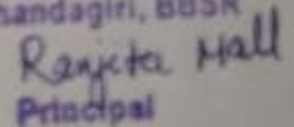 handagiri, BBSR
Ranjita Mall
Principal